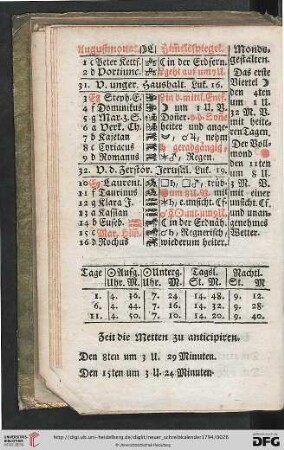 Augustmonat. Himelsspiegel. Monds-
1 c Peter Kettf. C in der Erdfern. gestalten.
2 d Portiunc. geht auf um 11 U. Das erste
31. V. unger. Haushalt. Luk. 16. Viertel
3 Eg Steph. E. den 4ten
4 f Dominikus um 1 U. um 1 U.
5 g Mar. 3. S. 32 M. V.
6 a Verk. Ch. heiter und ange- mit heite-
7 b Kajetan nehm ren Tagen.
8 c Cyriacus geradgängig, Der Voll-
9 d Romanus Regen. mond
32. V. d. Zerstör. Jerusal. Luk. 19. den 11ten
10 Eg Laurent. trüb um 8 U.
11 f Taurinus 51 M. V. mit
12 g Klara J. unscht. Cf. mit einer
13 a Kassian unscht. Cf.
14 b Euseb. C in der Erdnäh. und unan-
15 c Mar. Him. Regnerisch, genehmes
16 d Rochus wiederum heiter. Wetter.
Tage Aufg. Unterg. Tagsl. Nachtl.
Uhr. M. Uhr. M. St. M. St. M
1. 4. 36. 7. 24. 14. 48. 9. 12.
6. 4. 44. 7. 16. 14. 32. 9. 28.
11. 4. 50. 7. 10. 14. 20. 9. 40.
Zeit die Metten zu anticipiren.
Den 8ten um 3 U. 29 Minuten.
Den 15ten um 3 U. 24 Minuten.
UNIVERSITÄTS-
BIBLIOTHEK
HEIDELBERG
http://digi.ub.uni-heidelberg.de/diglit/neuer_schreibkalender1794/0026
© Universitätsbibliothek Heidelberg
DFG